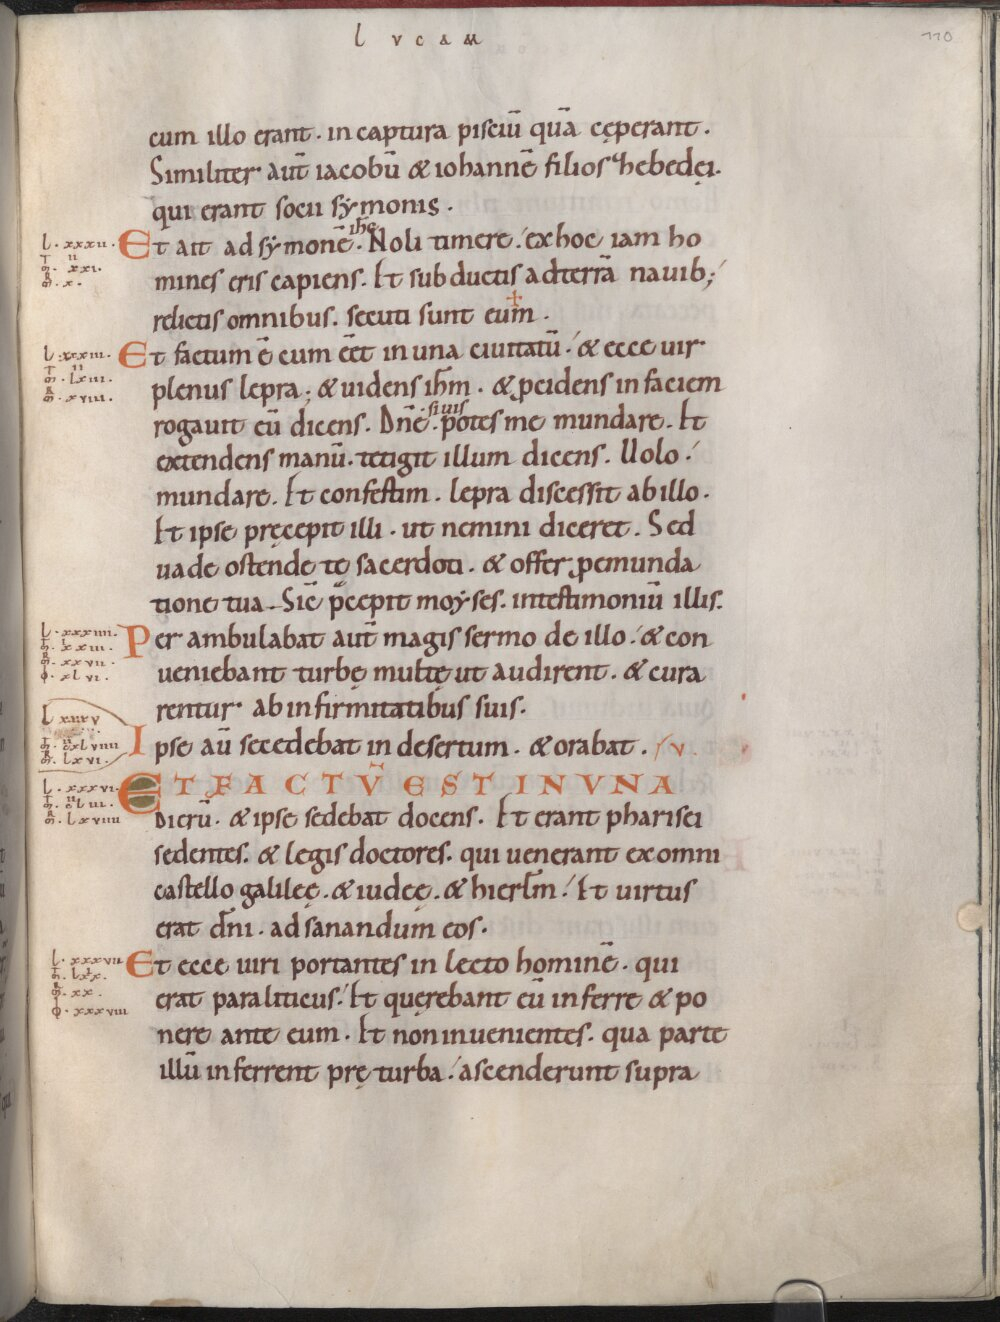 LVCAM
110
cum illo erant. in captura pisciū quā cęperant.
Similiter aut̄ iacobū & iohannē filios hebedęi.
qui erant socii sẏmonis.
l. xxxii. Et ait ad sẏmonē. ih̄c Noli timere. exhoc iam ho
xxi.
x.
mines eris capiens. Et subductis adterrā nauib;
relictis omnibus. secuti sunt eum.
l. xxxiii. Et factum ē cum eēt in una ciuitatū. & ecce uir
lxiii.
xviii.
plenus lepra; & uidens ih̄m. & pcidens in faciem
rogauit eū dicens. Dn̄e. siuis potes me mundare. Et
extendens manū. tetigit illum dicens. Uolo.
mundare. Et confestim. lepra discessit ab illo.
Et ipse pręcepit illi. ut nemini diceret. Sed
uade ostende te sacerdoti. & offer pemunda
tione tua. Sic̄ p̄cepit moẏses. intestimoniū illis.
l. xxxiiii. Per ambulabat aut̄ magis sermo de illo. & con
xxiii.
xxvii.
xlvi.
ueniebant turbę multę ut audirent. & cura
rentur ab infirmitatibus suis.
l. xxxv
Ipse aū secedebat in desertum. & orabat. v.
lxvi.
l. xxxvi. ET FACTV̄ EST IN VNA
lxviiii
Dierū. & ipse sedebat docens. Et erant pharisei
sedentes. & legis doctores. qui uenerant ex omni
castello galileę. & iudeę. & hierl̄m. Et uirtus
erat dn̄i. ad sanandum eos.
l. xxxvii Et ecce uiri portantes in lecto hominē. qui
lxx.
xx.
xxxviii
erat paraliticus. Et quęrebant eū inferre & po
nere ante eum. Et non inuenientes. qua parte
illū inferrent prę turba. ascenderunt supra